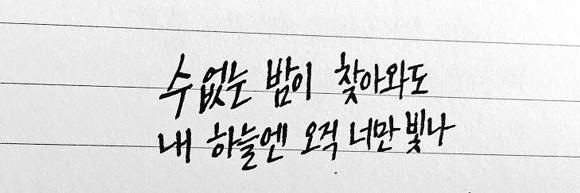 수없는 밤이 찾아와도
내 하늘엔 오직 너만 빛나